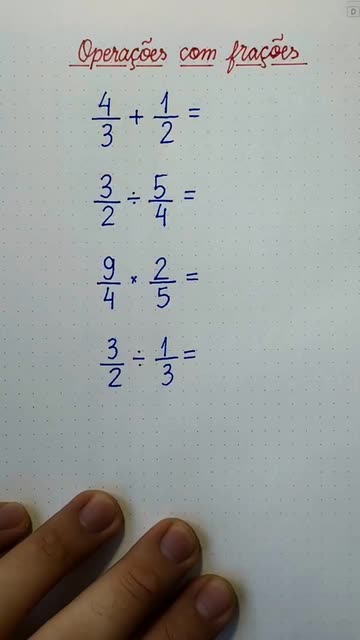 Operações com frações
4/3 + 1/2 =
3/2 ÷ 5/4 =
9/4 × 2/5 =
3/2 ÷ 1/3 =